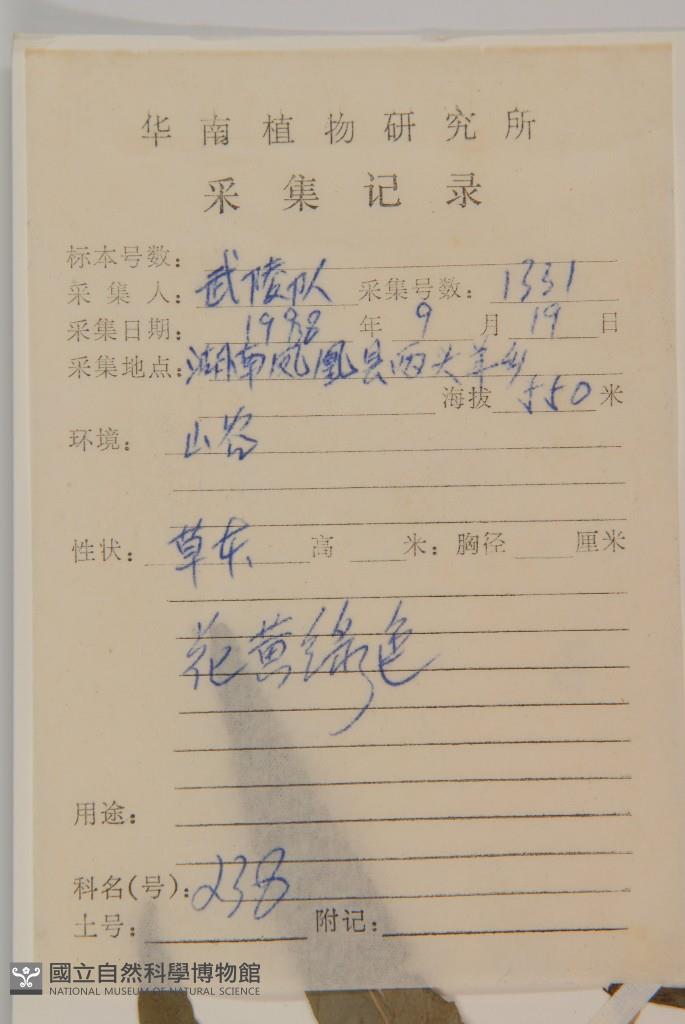 华南植物研究所
采集记录
标本号数：
采集人：武陵队 采集号数：1331
采集日期：1988年9月19日
采集地点：湖南凤凰县两头羊乡
海拔 550 米
环境：山谷
性状：草本 高 米；胸径 厘米
花黄绿色
用途：
科名(号)：238
土号： 附记：
國立自然科學博物館
NATIONAL MUSEUM OF NATURAL SCIENCE